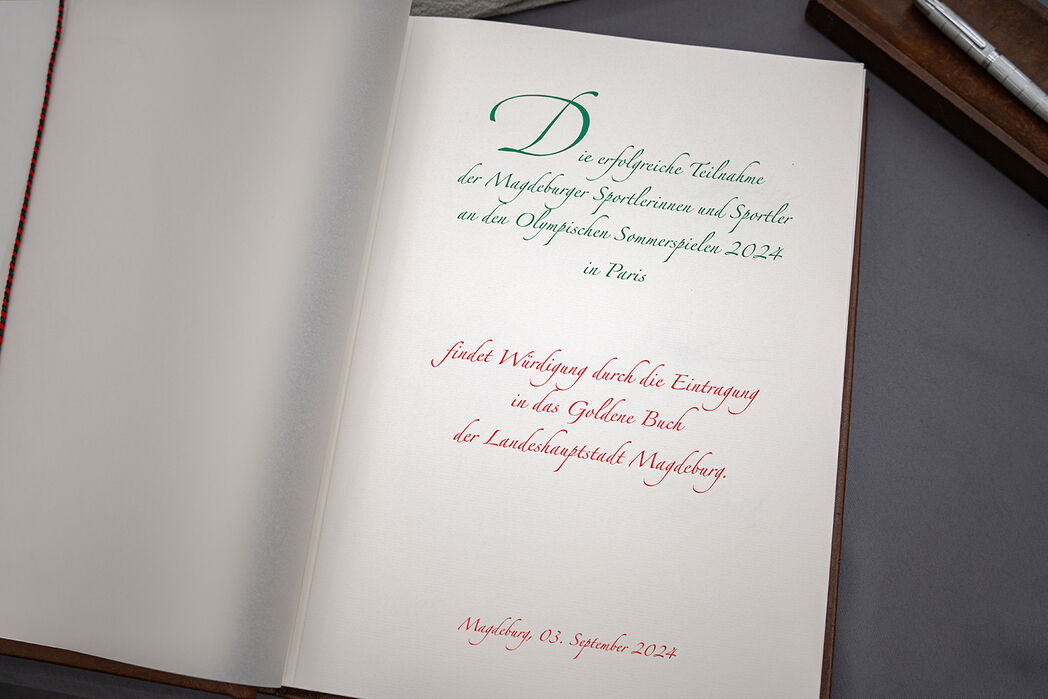 Die erfolgreiche Teilnahme
der Magdeburger Sportlerinnen und Sportler
an den Olympischen Sommerspielen 2024
in Paris
findet Würdigung durch die Eintragung
in das Goldene Buch
der Landeshauptstadt Magdeburg.
Magdeburg, 03. September 2024